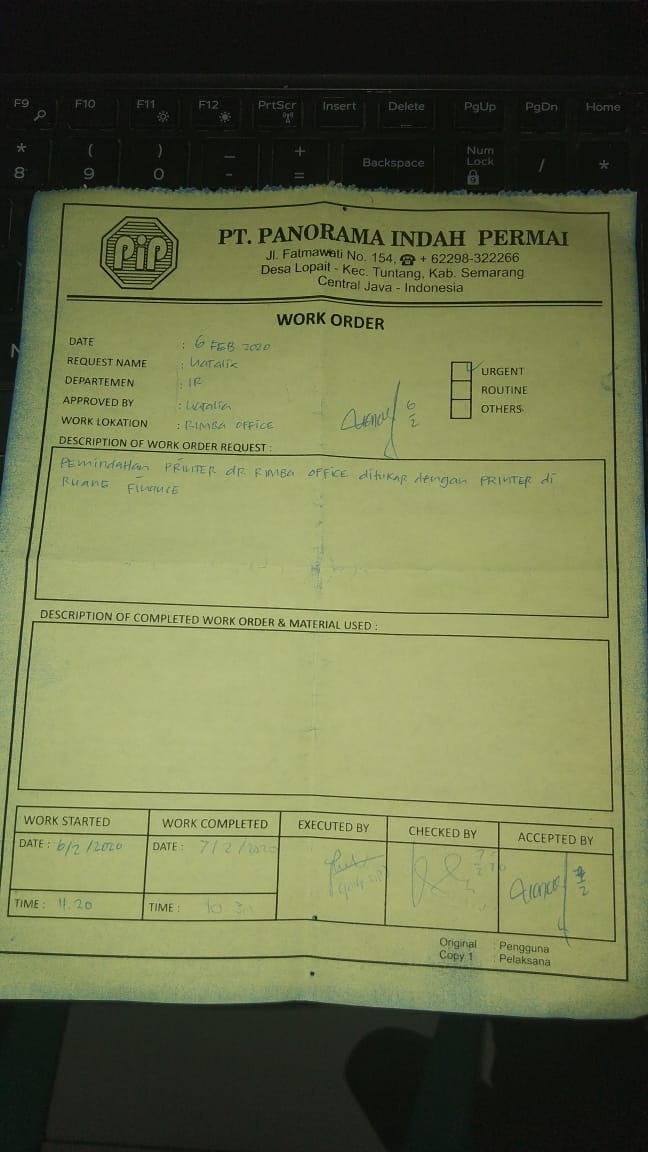 F9 F10 F11 F12 PrtScr Insert Delete PgUp PgDn Home
* ( ) _ + Backspace Num Lock / *
8 9 0 - =
PIP
PT. PANORAMA INDAH PERMAI
Jl. Fatmawati No. 154, ☎ + 62298-322266
Desa Lopait - Kec. Tuntang, Kab. Semarang
Central Java - Indonesia
WORK ORDER
DATE : 6 FEB 2020
REQUEST NAME : Natalia
DEPARTEMEN : IR
APPROVED BY : Natalia
WORK LOKATION : RIMBA OFFICE
URGENT
ROUTINE
OTHERS
6/2
DESCRIPTION OF WORK ORDER REQUEST :
PEMindAHAn PRINTER dR RIMBA OFFICE ditukar dengan PRINTER di
Ruang Finance
DESCRIPTION OF COMPLETED WORK ORDER & MATERIAL USED :
WORK STARTED WORK COMPLETED EXECUTED BY CHECKED BY ACCEPTED BY
DATE : 6/2/2020 DATE : 7/2/2020
TIME : 11.20 TIME : 10 30
Original : Pengguna
Copy 1 : Pelaksana